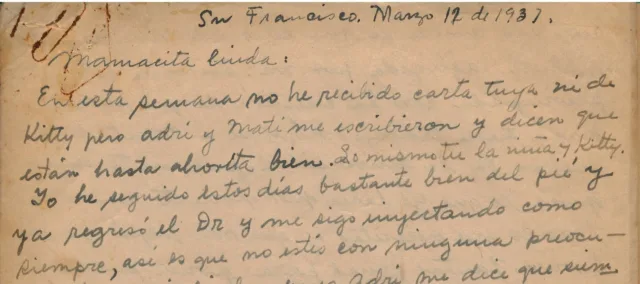 Sn Francisco. Marzo 12 de 1937.
Mamacita linda:
En esta semana no he recibido carta tuya ni de
Kitty pero adri y Mati me escribieron y dicen que
están hasta ahorita bien. Lo mismo tu la niña y Kitty.
Yo he seguido estos días bastante bien del pié y
ya regresó el Dr y me sigo inyectando como
siempre, así es que no estés con ninguna preocu-
adri me dice que siem